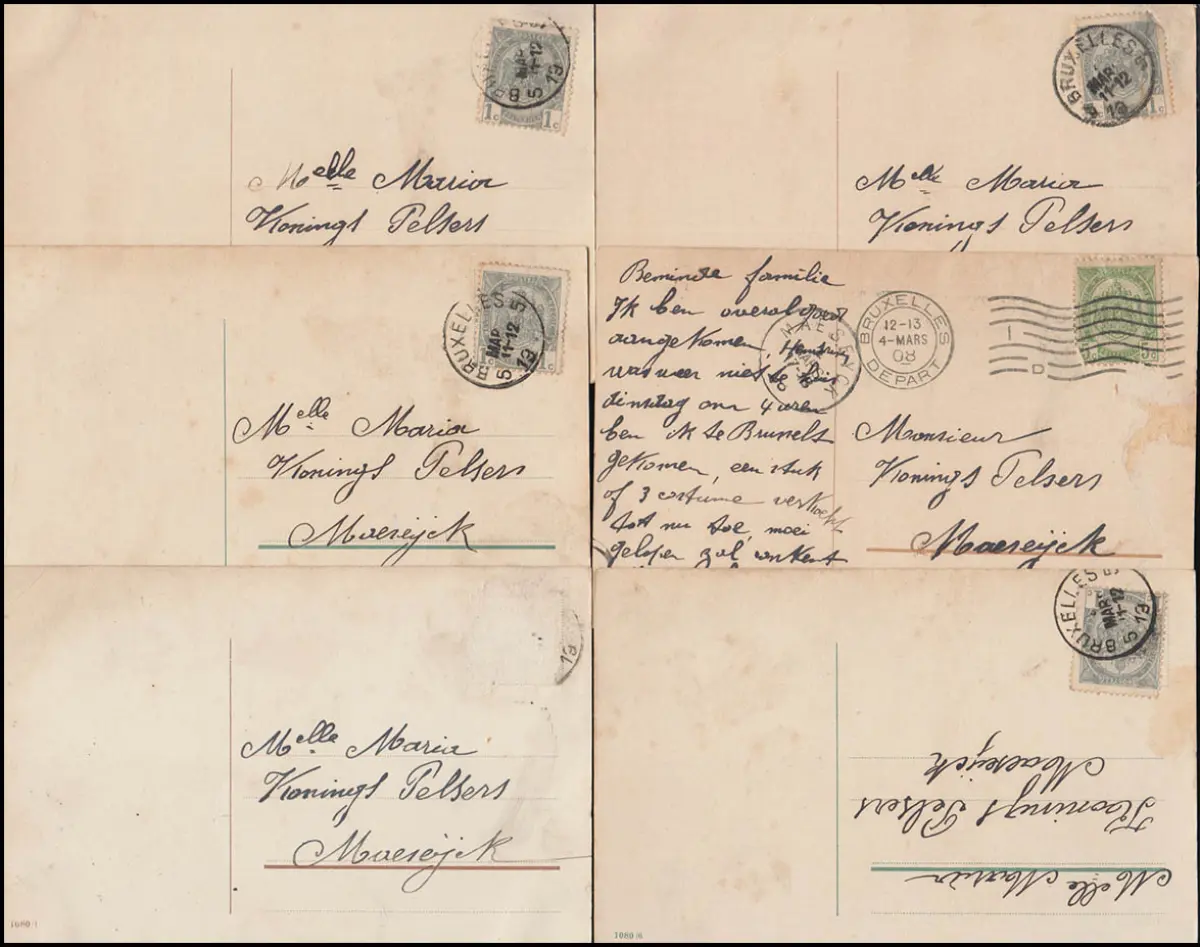 BRUXELLES 5
MAR
11-12
5 13
1c 1c
Melle Maria
Konings Pelsers
BRUXELLES 5
MAR
11-12
5 13
1c
Melle Maria
Konings Pelsers
BRUXELLES 5
MAR
11-12
5 13
1c
Melle Maria
Konings Pelsers
Maeseijck
Beminde familie
Ik ben overal goed
aangekomen,
dinsdag om 4 uren
ben ik te Brussels
gekomen, een stuk
of 3 costume verkocht
tot nu toe, moei
gelopen zal
MAESEYCK
BRUXELLES
12-13
4-MARS
08
DEPART
Monsieur
Konings Pelsers
Maeseijck
13
Melle Maria
Konings Pelsers
Maeseijck
1080
BRUXELLES 5
MAR
11-12
5 13
Melle Maria
Konings Pelsers
Maeseijck
1080